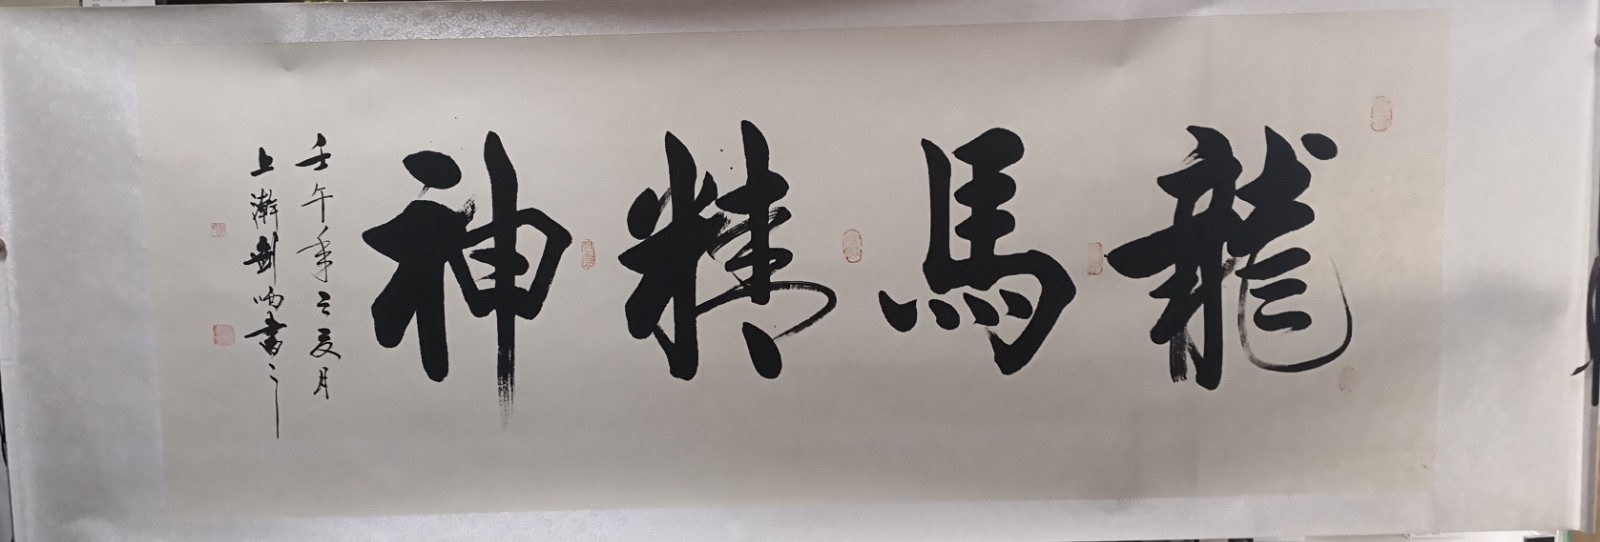 龍馬精神
壬午年之夏月
上澣劍鳴書